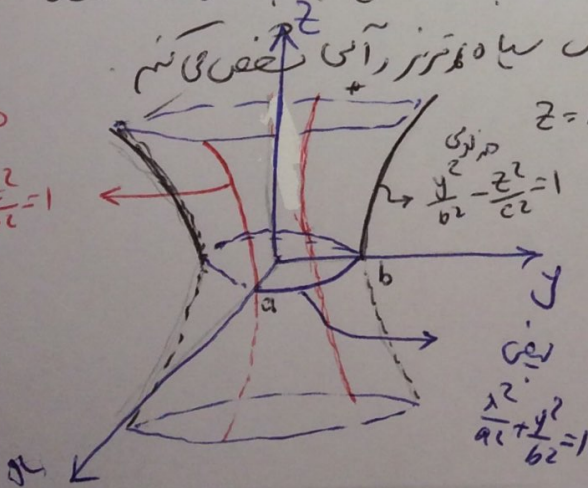 Z
سیاه قرمز آبی مشخص می کنم
*
Z =
هذلولی
y²/b² - z²/c² = 1
²/c² = 1
b
y
a
بیضی
x²/a² + y²/b² = 1
x